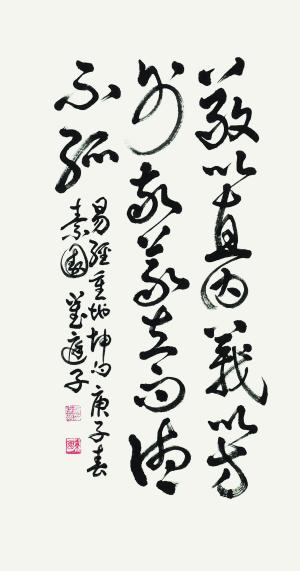 敬以直内義以方
外敬義立而德
不孤
易經重地坤句庚子春
素園 庭子